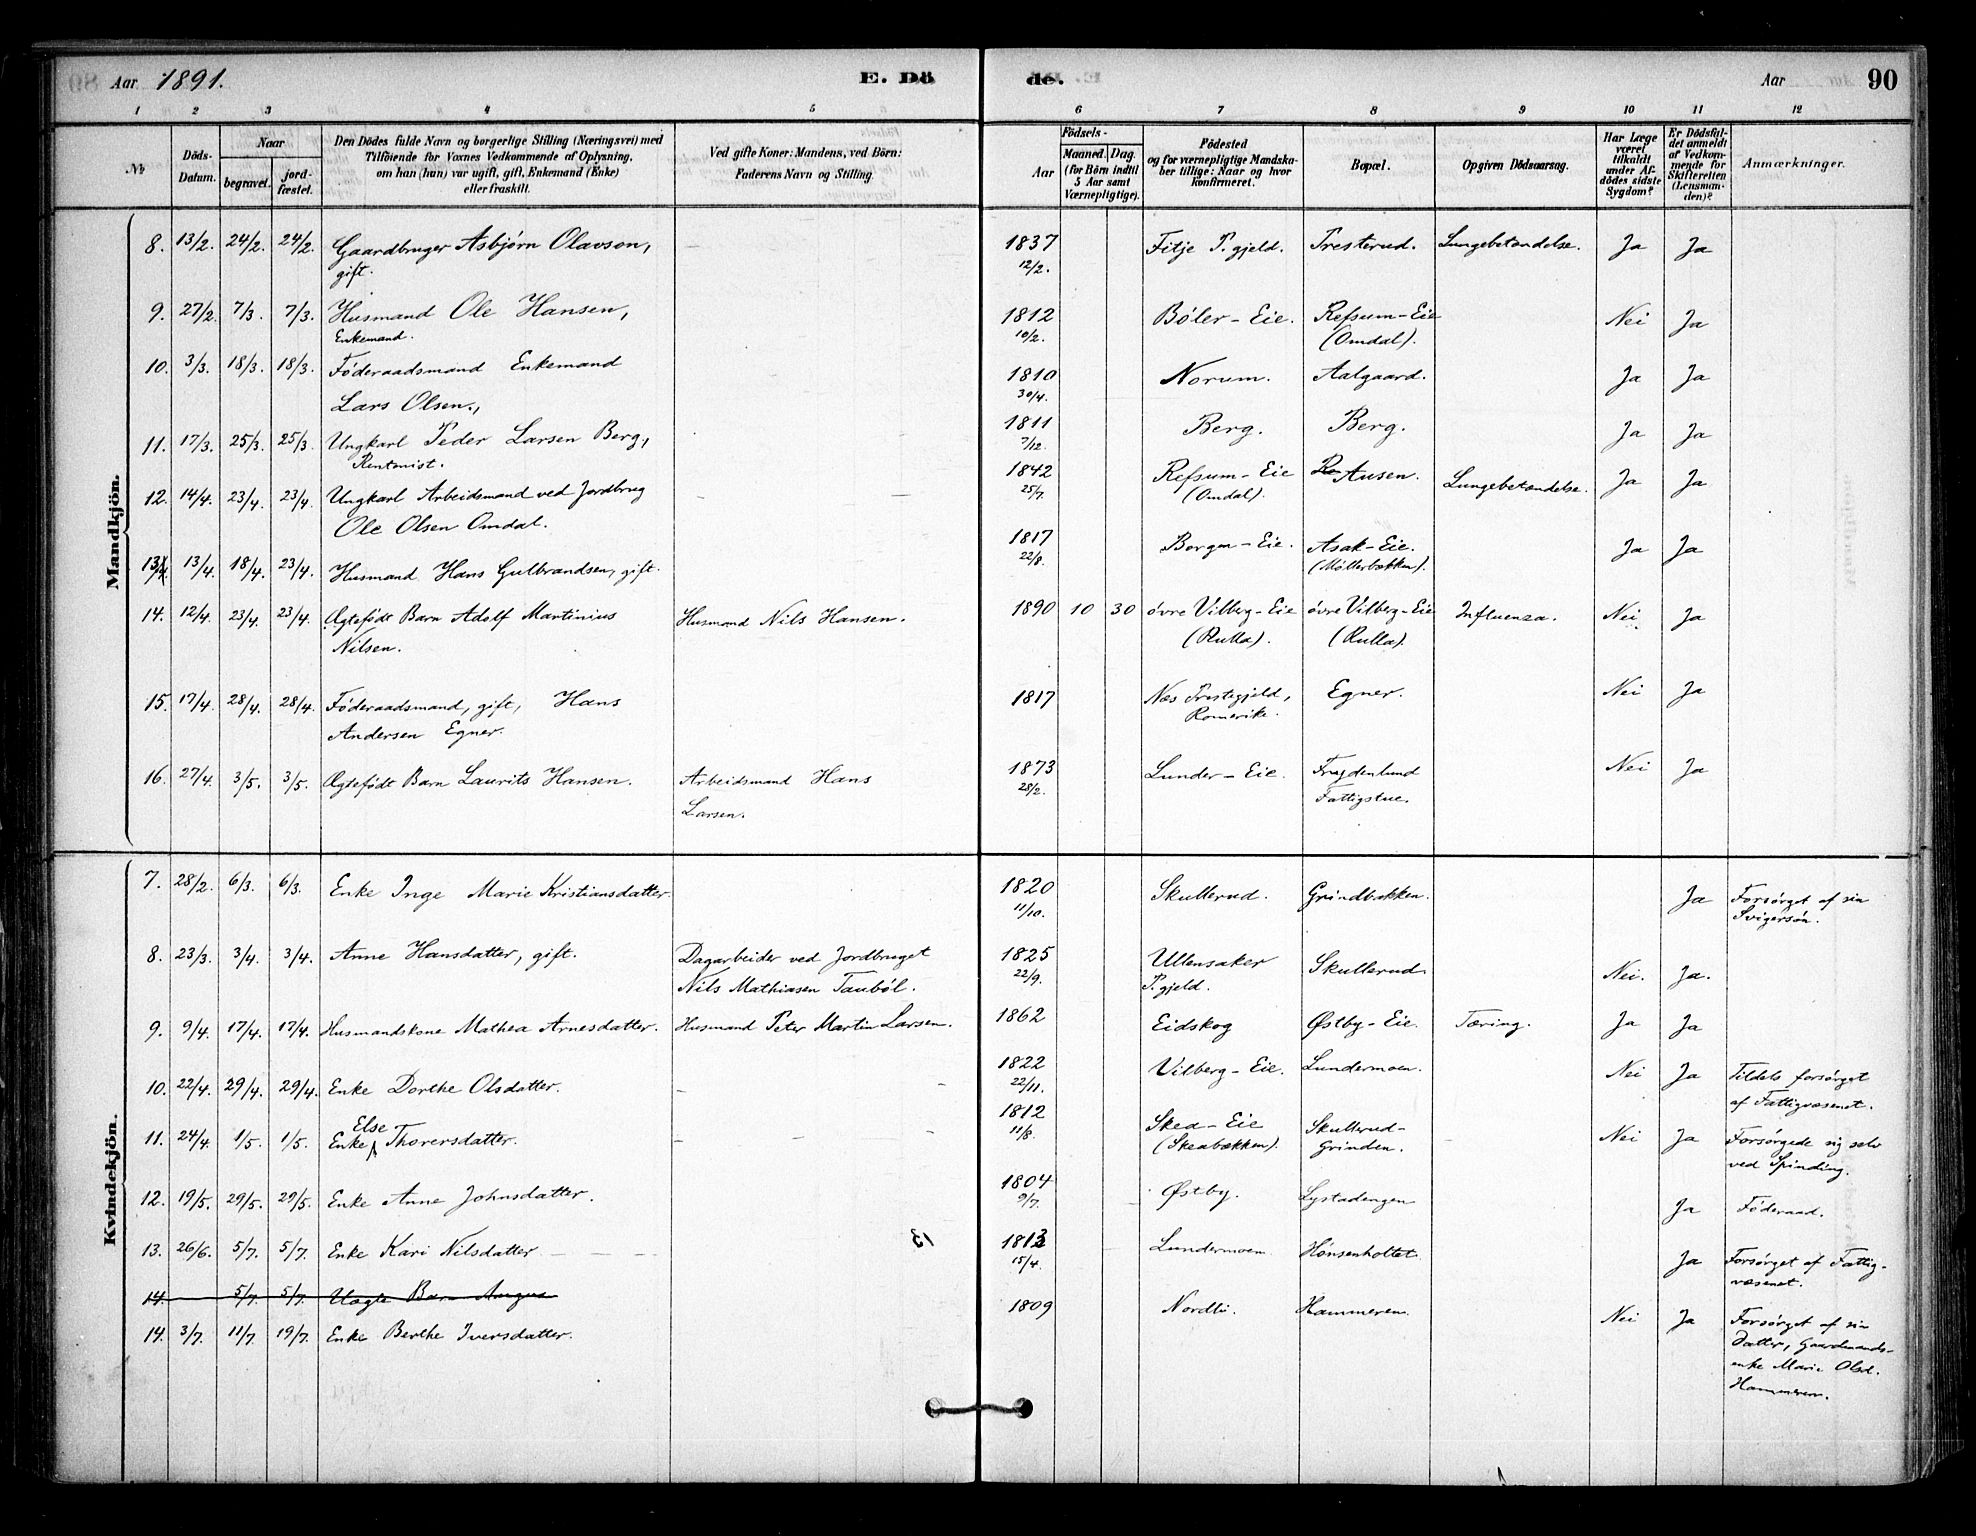 Aar 1891.
E. Dö
de.
Aar
90
1 2 3 4 5 6 7 8 9 10 11 12
№
Döds-Datum.
Naar
begravet.
jord-fæstet.
Den Dödes fulde Navn og borgerlige Stilling (Næringsvei) med
Tilföiende for Voxnes Vedkommende af Oplysning,
om han (hun) var ugift, gift, Enkemand (Enke)
eller fraskilt.
Ved gifte Koner: Mandens, ved Börn:
Faderens Navn og Stilling.
Födsels-
Aar
Maaned. Dag.
(for Börn indtil
5 Aar samt
Værnepligtige).
Födested
og for værnepligtige Mandska-
ber tillige: Naar og hvor
konfirmeret.
Bopæl.
Opgiven Dödsaarsag.
Har Læge
været
tilkaldt
under Af-
dödes sidste
Sygdom?
Er Dödsfal-
det anmeldt
af Vedkom-
mende for
Skifteretten
(Lensman-
den)?
Anmærkninger.
Mandkjön.
8. 13/2. 24/2. 24/2. Gaardbruger Asbjørn Olavson, — 1837 Fitje P.gjeld. Tresterud. Lungebetændelse. Ja Ja
gift. 12/2.
9. 27/2. 7/3. 7/3. Husmand Ole Hansen, 1812 Bøler-Eie. Refsum-Eie Nei Ja
Enkemand. 10/2. (Omdal).
10. 3/3. 18/3. 18/3. Føderaadsmand Enkemand 1810 Norum. Aalgaard. Ja Ja
Lars Olsen., 30/4.
11. 17/3. 25/3. 25/3. Ungkarl Peder Larsen Berg, 1811 Berg. Berg. Ja Ja
Rentenist. 7/12.
12. 14/4. 23/4. 23/4. Ungkarl Arbeidsmand ved Jordbrug — — 1842 Refsum-Eie Ausen. Lungebetændelse. Ja Ja
Ole Olsen Omdal. 25/7. (Omdal).
13. 13/4. 18/4. 23/4. Husmand Hans Gulbrandsen, gift. 1817 Borgen-Eie. Asak-Eie. Ja Ja
22/8. (Møllerbækken).
14. 12/4. 23/4. 23/4. Ægtefødt Barn Adolf Martinius Husmand Nils Hansen. 1890 10 30 øvre Vilberg-Eie øvre Vilberg-Eie Influenza. Nei Ja
Nilsen. (Rulla). (Rulla).
15. 17/4. 28/4. 28/4. Føderaadsmand, gift, Hans 1817 Næs Prestegjeld, Egner. Nei Ja
Andersen Egner. Romerike.
16. 27/4. 3/5. 3/5. Ægtefødt Barn Laurits Hansen. Arbeidsmand Hans 1873 Lunder-Eie. Frydenlund Nei Ja
Larsen. 28/2. Fattigstue.
Kvindekjön.
7. 28/2. 6/3. 6/3. Enke Inge Marie Kristiansdatter. 1820 Skullerud. Grindbækken. Ja Forsørget af sin
11/10. Svigersøn.
8. 23/3. 3/4. 3/4. Anne Hansdatter, gift. Dagarbeider ved Jordbruget 1825 Ullensaker Skullerud. Nei. Ja.
Nils Mathiasen Taubøl. 22/9. P.gjeld.
9. 9/4. 17/4. 17/4. Husmandskone Mathea Arnesdatter. Husmand Peter Martin Larsen. 1862 Eidskog Østby-Eie. Tæring. Ja Ja
10. 22/4. 29/4. 29/4. Enke Dorthe Olsdatter. — — 1822 Vilberg-Eie. Lundermoen. Nei Ja Tildels forsørget
22/11. af Fattigvæsenet.
11. 24/4. 1/5. 1/5. Enke Else Thorersdatter. — — — 1812 Skea-Eie Skullerud- Nei Ja Forsørgede sig selv
11/8. (Skeabækken). Grinden. ved Spinding.
12. 19/5. 29/5. 29/5. Enke Anne Johnsdatter. 1804 Østby. Lystadengen Ja Føderaad.
9/7.
13. 26/6. 5/7. 5/7. Enke Kari Nilsdatter — — — 1813 Lundermoen Hønsenholtet. Ja Forsørget af Fattig-
15/4. væsenet.
14. 5/7. 5/7. Uægte Barn
14. 3/7. 11/7. 19/7. Enke Berthe Iversdatter. 1809 Nordli. Hammeren. Nei Ja Forsørget af sin
Datter, Gaardmands-
enke Marie Olsd.
Hammeren.